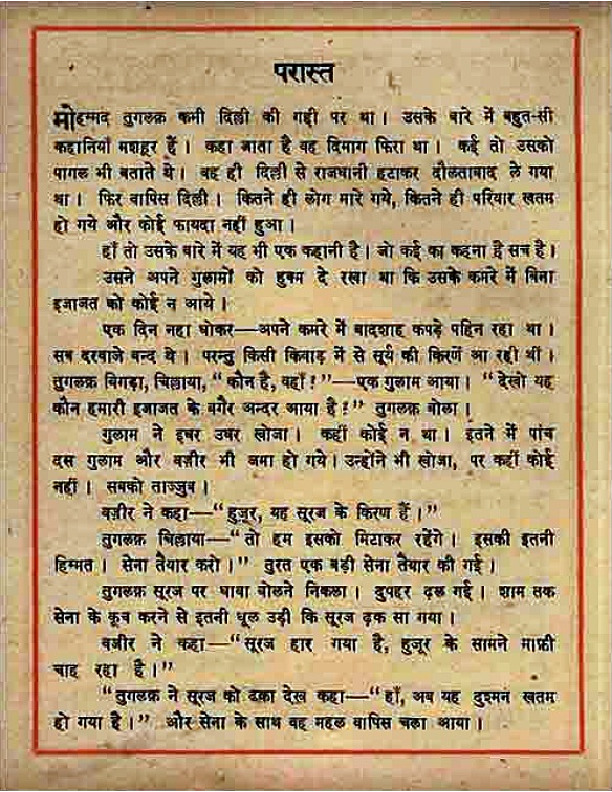 परास्त
मोहम्मद तुगलक़ कभी दिल्ली की गद्दी पर था। उसके बारे में बहुत-सी
कहानियाँ मशहूर हैं। कहा जाता है वह दिमाग फिरा था। कई तो उसको
पागल भी बताते थे। वह ही दिल्ली से राजधानी हटाकर दौलताबाद ले गया
था। फिर वापिस दिल्ली। कितने ही लोग मारे गये, कितने ही परिवार खतम
हो गये और कोई फायदा नहीं हुआ।
हाँ तो उसके बारे में यह भी एक कहानी है। जो कई का कहना है सच है।
उसने अपने गुलामों को हुक्म दे रखा था कि उसके कमरे में बिना
इजाजत को कोई न आये।
एक दिन नहा धोकर—अपने कमरे में बादशाह कपड़े पहिन रहा था।
सब दरवाजे बन्द थे। परन्तु किसी किवाड़ में से सूर्य की किरणें आ रही थीं।
तुगलक़ बिगड़ा, चिल्लाया, “कौन है, वहाँ!”—एक गुलाम आया। “देखो यह
कौन हमारी इजाजत के बगैर अन्दर आया है!” तुगलक़ बोला।
गुलाम ने इधर उधर खोजा। कहीं कोई न था। इतने में पांच
दस गुलाम और वज़ीर भी जमा हो गये। उन्होंने भी खोजा, पर कहीं कोई
नहीं। सबको ताज्जुब।
वज़ीर ने कहा—“हुजूर, यह सूरज के किरण हैं।”
तुगलक़ चिल्लाया—“तो हम इसको मिटाकर रहेंगे। इसकी इतनी
हिम्मत। सेना तैयार करो।” तुरत एक बड़ी सेना तैयार की गई।
तुगलक़ सूरज पर धावा बोलने निकला। दुपहर ढल गई। शाम तक
सेना के कूच करने से इतनी धूल उड़ी कि सूरज ढ़क सा गया।
वज़ीर ने कहा—“सूरज हार गया है, हुजूर के सामने माफ़ी
चाह रहा है।”
“तुगलक़ ने सूरज को ढका देख कहा—“हाँ, अब यह दुश्मन खतम
हो गया है।” और सेना के साथ वह महल वापिस चला आया।